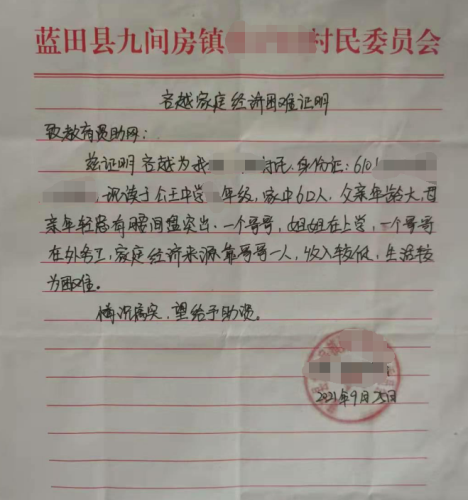 蓝田县九间房镇 村民委员会
容越家庭经济困难证明
致教育资助网:
兹证明容越为我 村民,身份证:6101
,就读于公王中学 年级,家中6口人,父亲年龄大,母
亲年轻患有腰间盘突出,一个哥哥,姐姐在上学,一个哥哥
在外务工,家庭经济来源靠哥哥一人,收入较低,生活较
为困难。
情况属实,望给予助资。
2021年9月25日